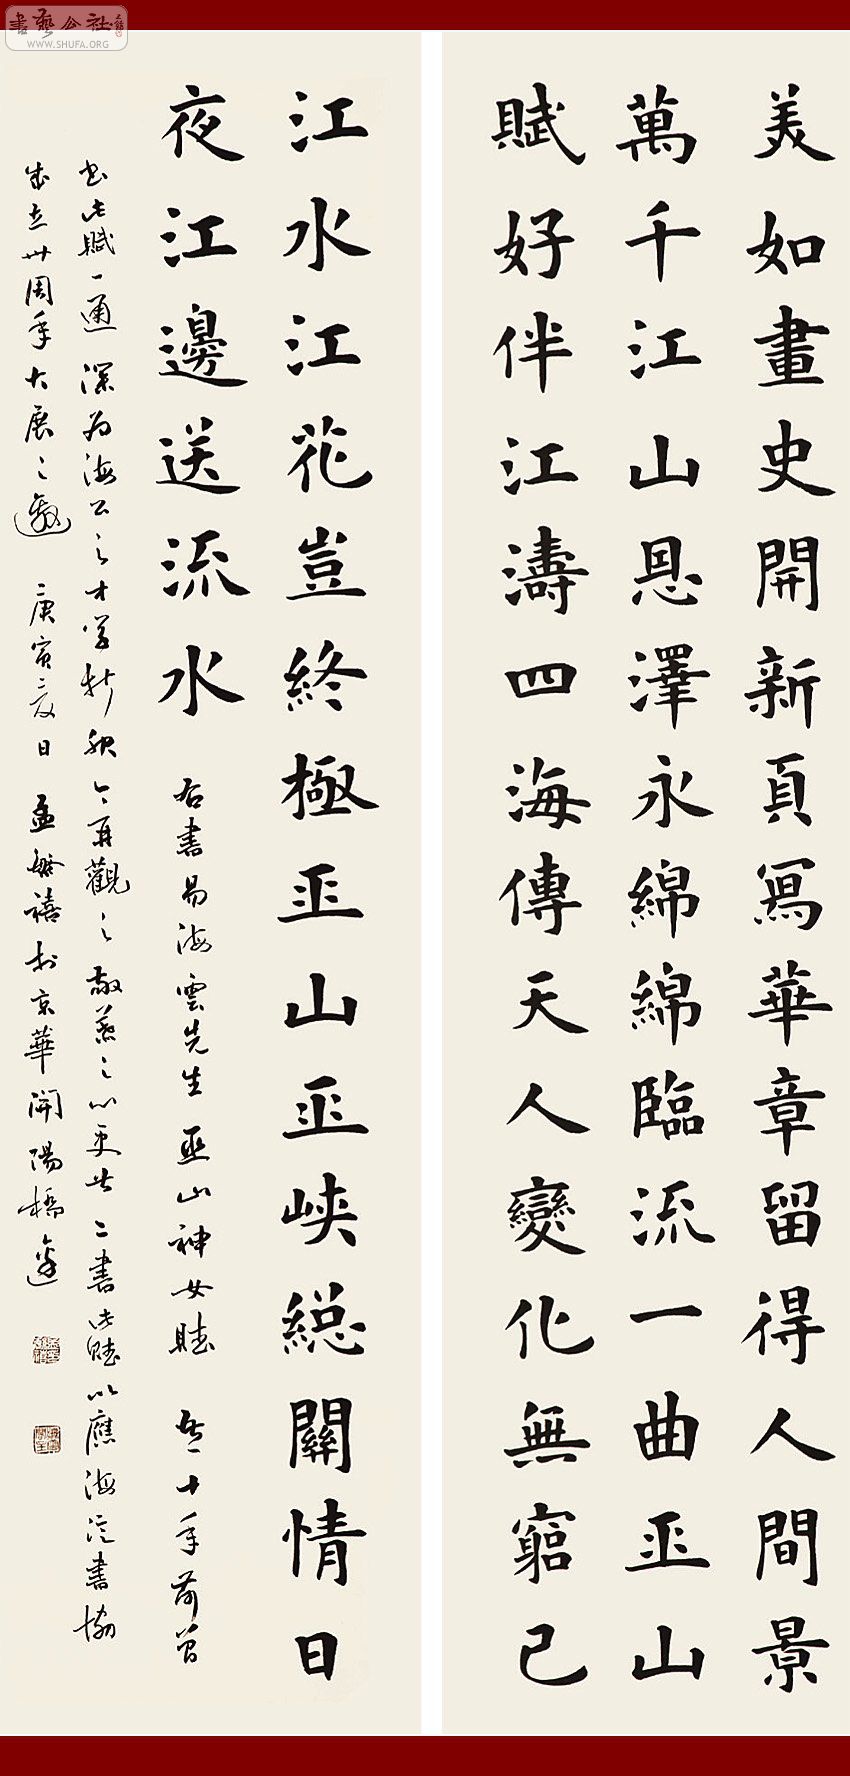 書藝公社
WWW.SHUFA.ORG
美如畫史開新頁寫華章留得人間景
萬千江山恩澤永綿綿臨流一曲巫山
賦好伴江濤四海傳天人變化無窮已
江水江花豈終極巫山巫峽總關情日
夜江邊送流水
右書易海雲先生 巫山神女賦 十年前曾
書此賦一通 深為海公之才學折服 今再觀之 書此賦以應海淀書協
成立卅周年大展之邀 庚寅夏日 孟繁禧於京華開陽橋邊